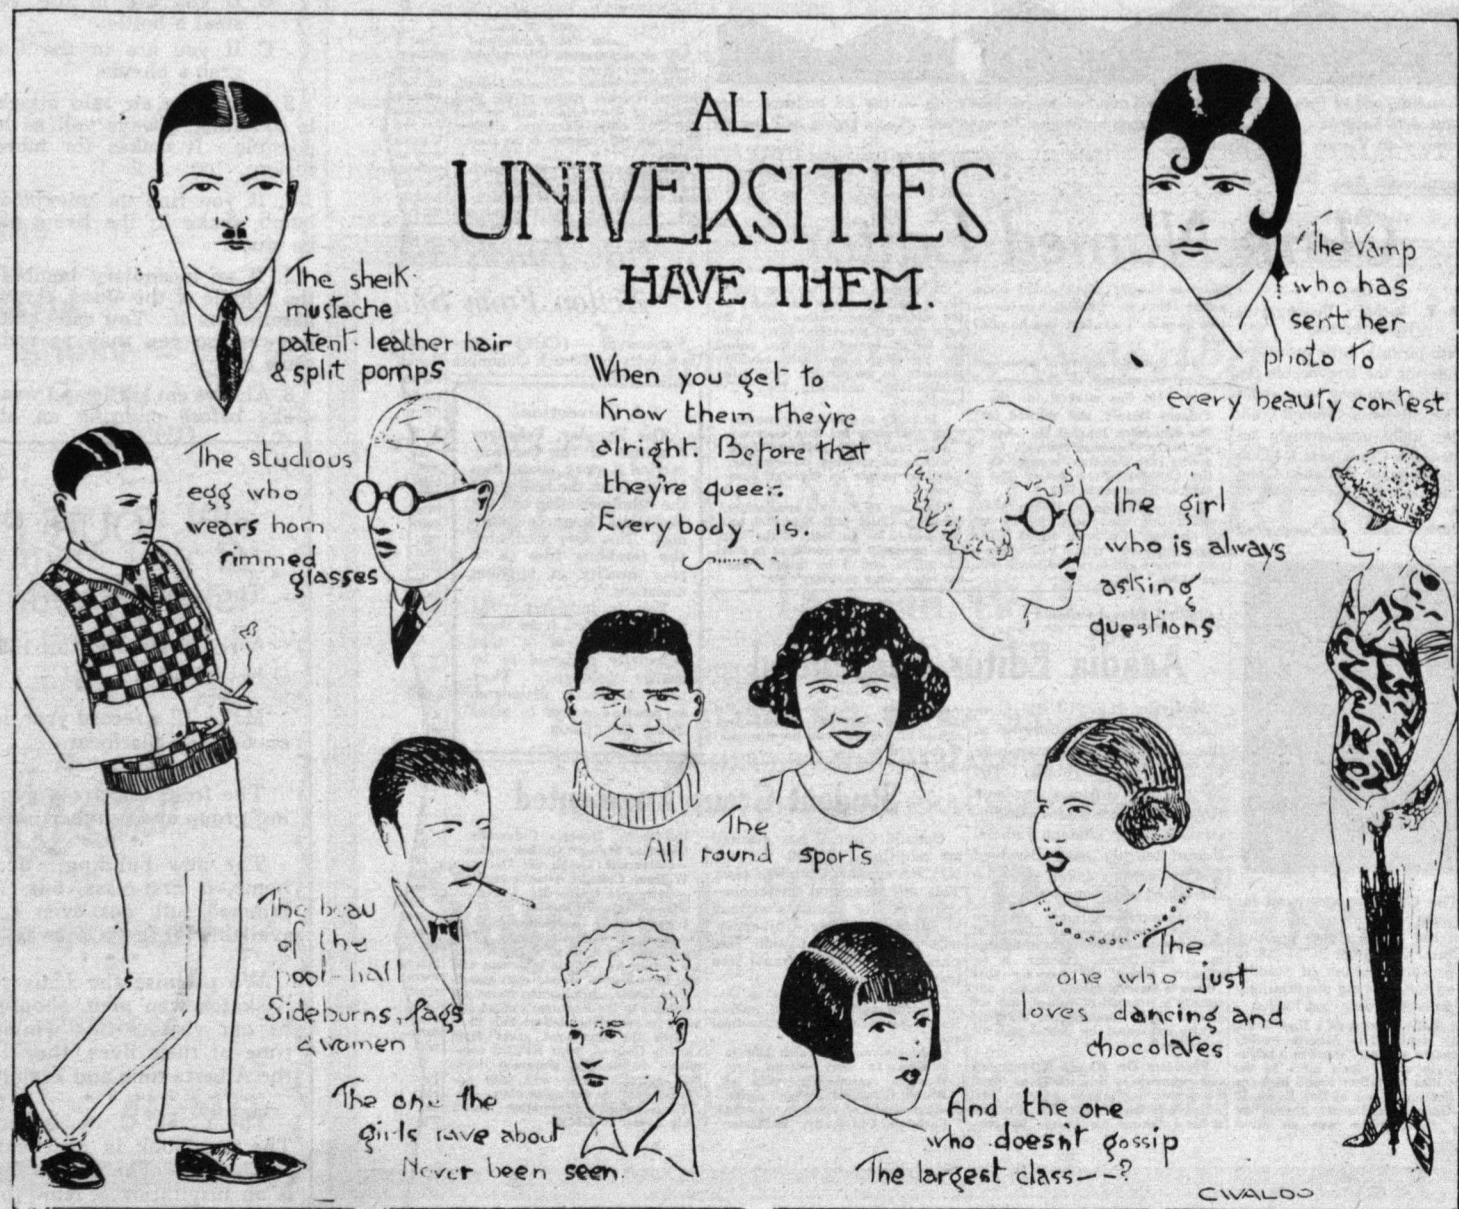 ALL
UNIVERSITIES
HAVE THEM.
The sheik
mustache
patent leather hair
& split pomps
When you get to
Know them they're
alright. Before that
they're queer.
Everybody is.
The Vamp
who has
sent her
photo to
every beauty contest
The studious
egg who
wears horn
rimmed
glasses
The girl
who is always
asking
questions
The
All round sports
The beau
of the
pool-hall
Sideburns, fags
& women
The
one who just
loves dancing and
chocolates
The one the
girls rave about
Never been seen.
And the one
who doesn't gossip
The largest class--?
CWALDO